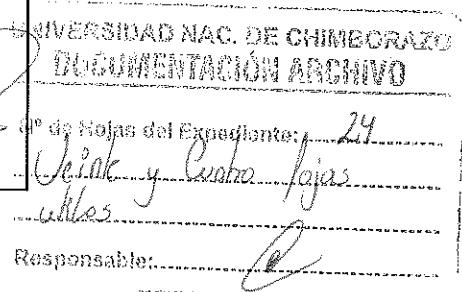 UNIVERSIDAD NAC. DE CHIMBORAZO
DOCUMENTACIÓN ARCHIVO
Nº de Hojas del Expediente: 24
Veinte y Cuatro fojas
utiles
Responsable: